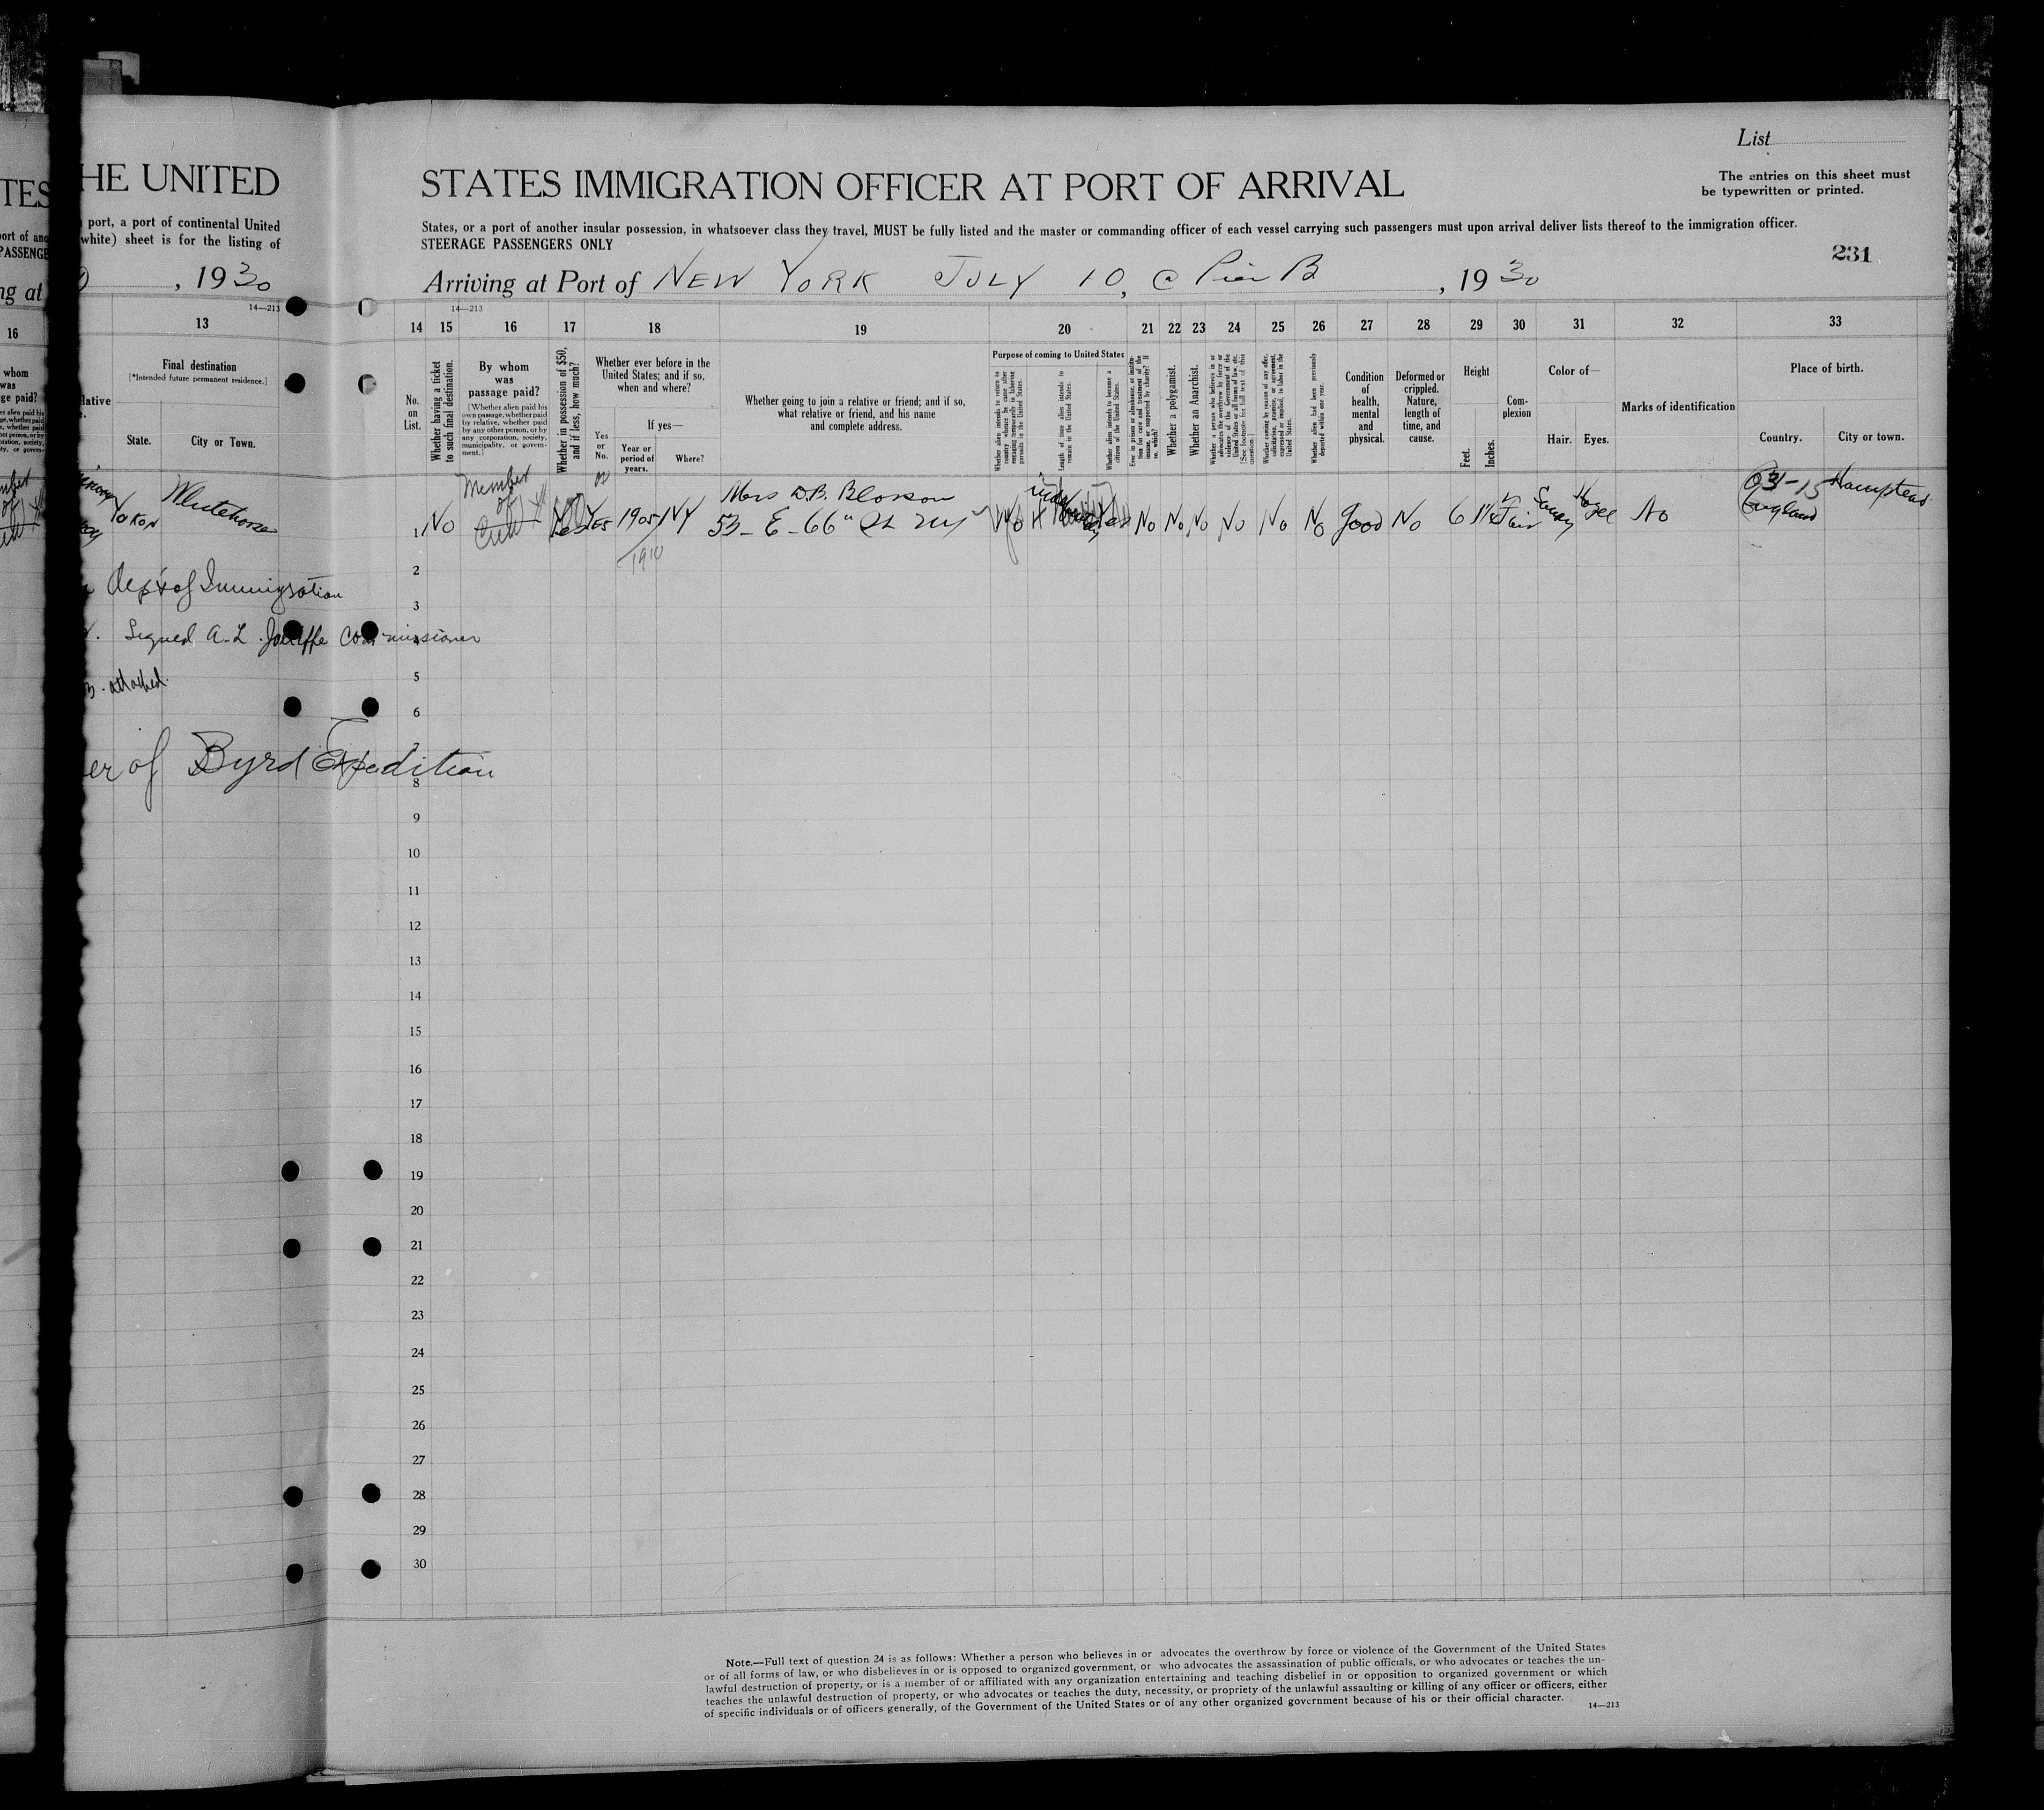 List
HE UNITED
STATES IMMIGRATION OFFICER AT PORT OF ARRIVAL
The entries on this sheet must
be typewritten or printed.
port, a port of continental United
white) sheet is for the listing of
States, or a port of another insular possession, in whatsoever class they travel, MUST be fully listed and the master or commanding officer of each vessel carrying such passengers must upon arrival deliver lists thereof to the immigration officer.
STEERAGE PASSENGERS ONLY
231
, 1930
Arriving at Port of NEW YORK JULY 10, @ Pier B, 1930
14—213
14—213
16
13
14 15 16 17 18 19 20 21 22 23 24 25 26 27 28 29 30 31 32 33
Final destination
[*Intended future permanent residence.]
State. City or Town.
No.
on
List.
Whether having a ticket
to such final destination.
By whom
was
passage paid?
[Whether alien paid his
own passage, whether paid
by relative, whether paid
by any other person, or by
any corporation, society,
municipality, or govern-
ment.]
Whether in possession of $50,
and if less, how much?
Whether ever before in the
United States; and if so,
when and where?
Yes
or
No.
If yes—
Year or
period of
years.
Where?
Whether going to join a relative or friend; and if so,
what relative or friend, and his name
and complete address.
Purpose of coming to United States
Whether alien intends to return to
country whence he came after
engaging temporarily in laboring
pursuits in the United States.
Length of time alien intends to
remain in the United States.
Whether alien intends to become a
citizen of the United States.
Ever in prison or almshouse, or institu-
tion for care and treatment of the
insane, or supported by charity? If
so, which?
Whether a polygamist.
Whether an Anarchist.
Whether a person who believes in or
advocates the overthrow by force or
violence of the Government of the
United States or all forms of law, etc.
[See footnote for full text of this
question.]
Whether coming by reason of any offer,
solicitation, promise, or agreement,
expressed or implied, to labor in the
United States.
Whether alien had been previously
deported within one year.
Condition
of
health,
mental
and
physical.
Deformed or
crippled.
Nature,
length of
time, and
cause.
Height
Feet. Inches.
Com-
plexion
Color of—
Hair. Eyes.
Marks of identification
Place of birth.
Country. City or town.
Yokon Whitehorse
1 No Member of Crew Yes Yes 1905/1910 NY
Mrs D.B. Blosson
53- E- 66" St NY
No Yes No No No No No No Good No 6 1¼ Fair Sandy Hazel No England Hampstead
Dept of Immigration
Signed A.L. Jolliffe Commissioner
attached.
er of Byrd Expedition
2
3
4
5
6
7
8
9
10
11
12
13
14
15
16
17
18
19
20
21
22
23
24
25
26
27
28
29
30
Note.—Full text of question 24 is as follows: Whether a person who believes in or advocates the overthrow by force or violence of the Government of the United States
or of all forms of law, or who disbelieves in or is opposed to organized government, or who advocates the assassination of public officials, or who advocates or teaches the un-
lawful destruction of property, or is a member of or affiliated with any organization entertaining and teaching disbelief in or opposition to organized government or which
teaches the unlawful destruction of property, or who advocates or teaches the duty, necessity, or propriety of the unlawful assaulting or killing of any officer or officers, either
of specific individuals or of officers generally, of the Government of the United States or of any other organized government because of his or their official character.
14—213